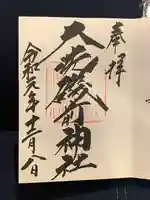 奉拝
大洗磯前神社
令和元年十二月八日